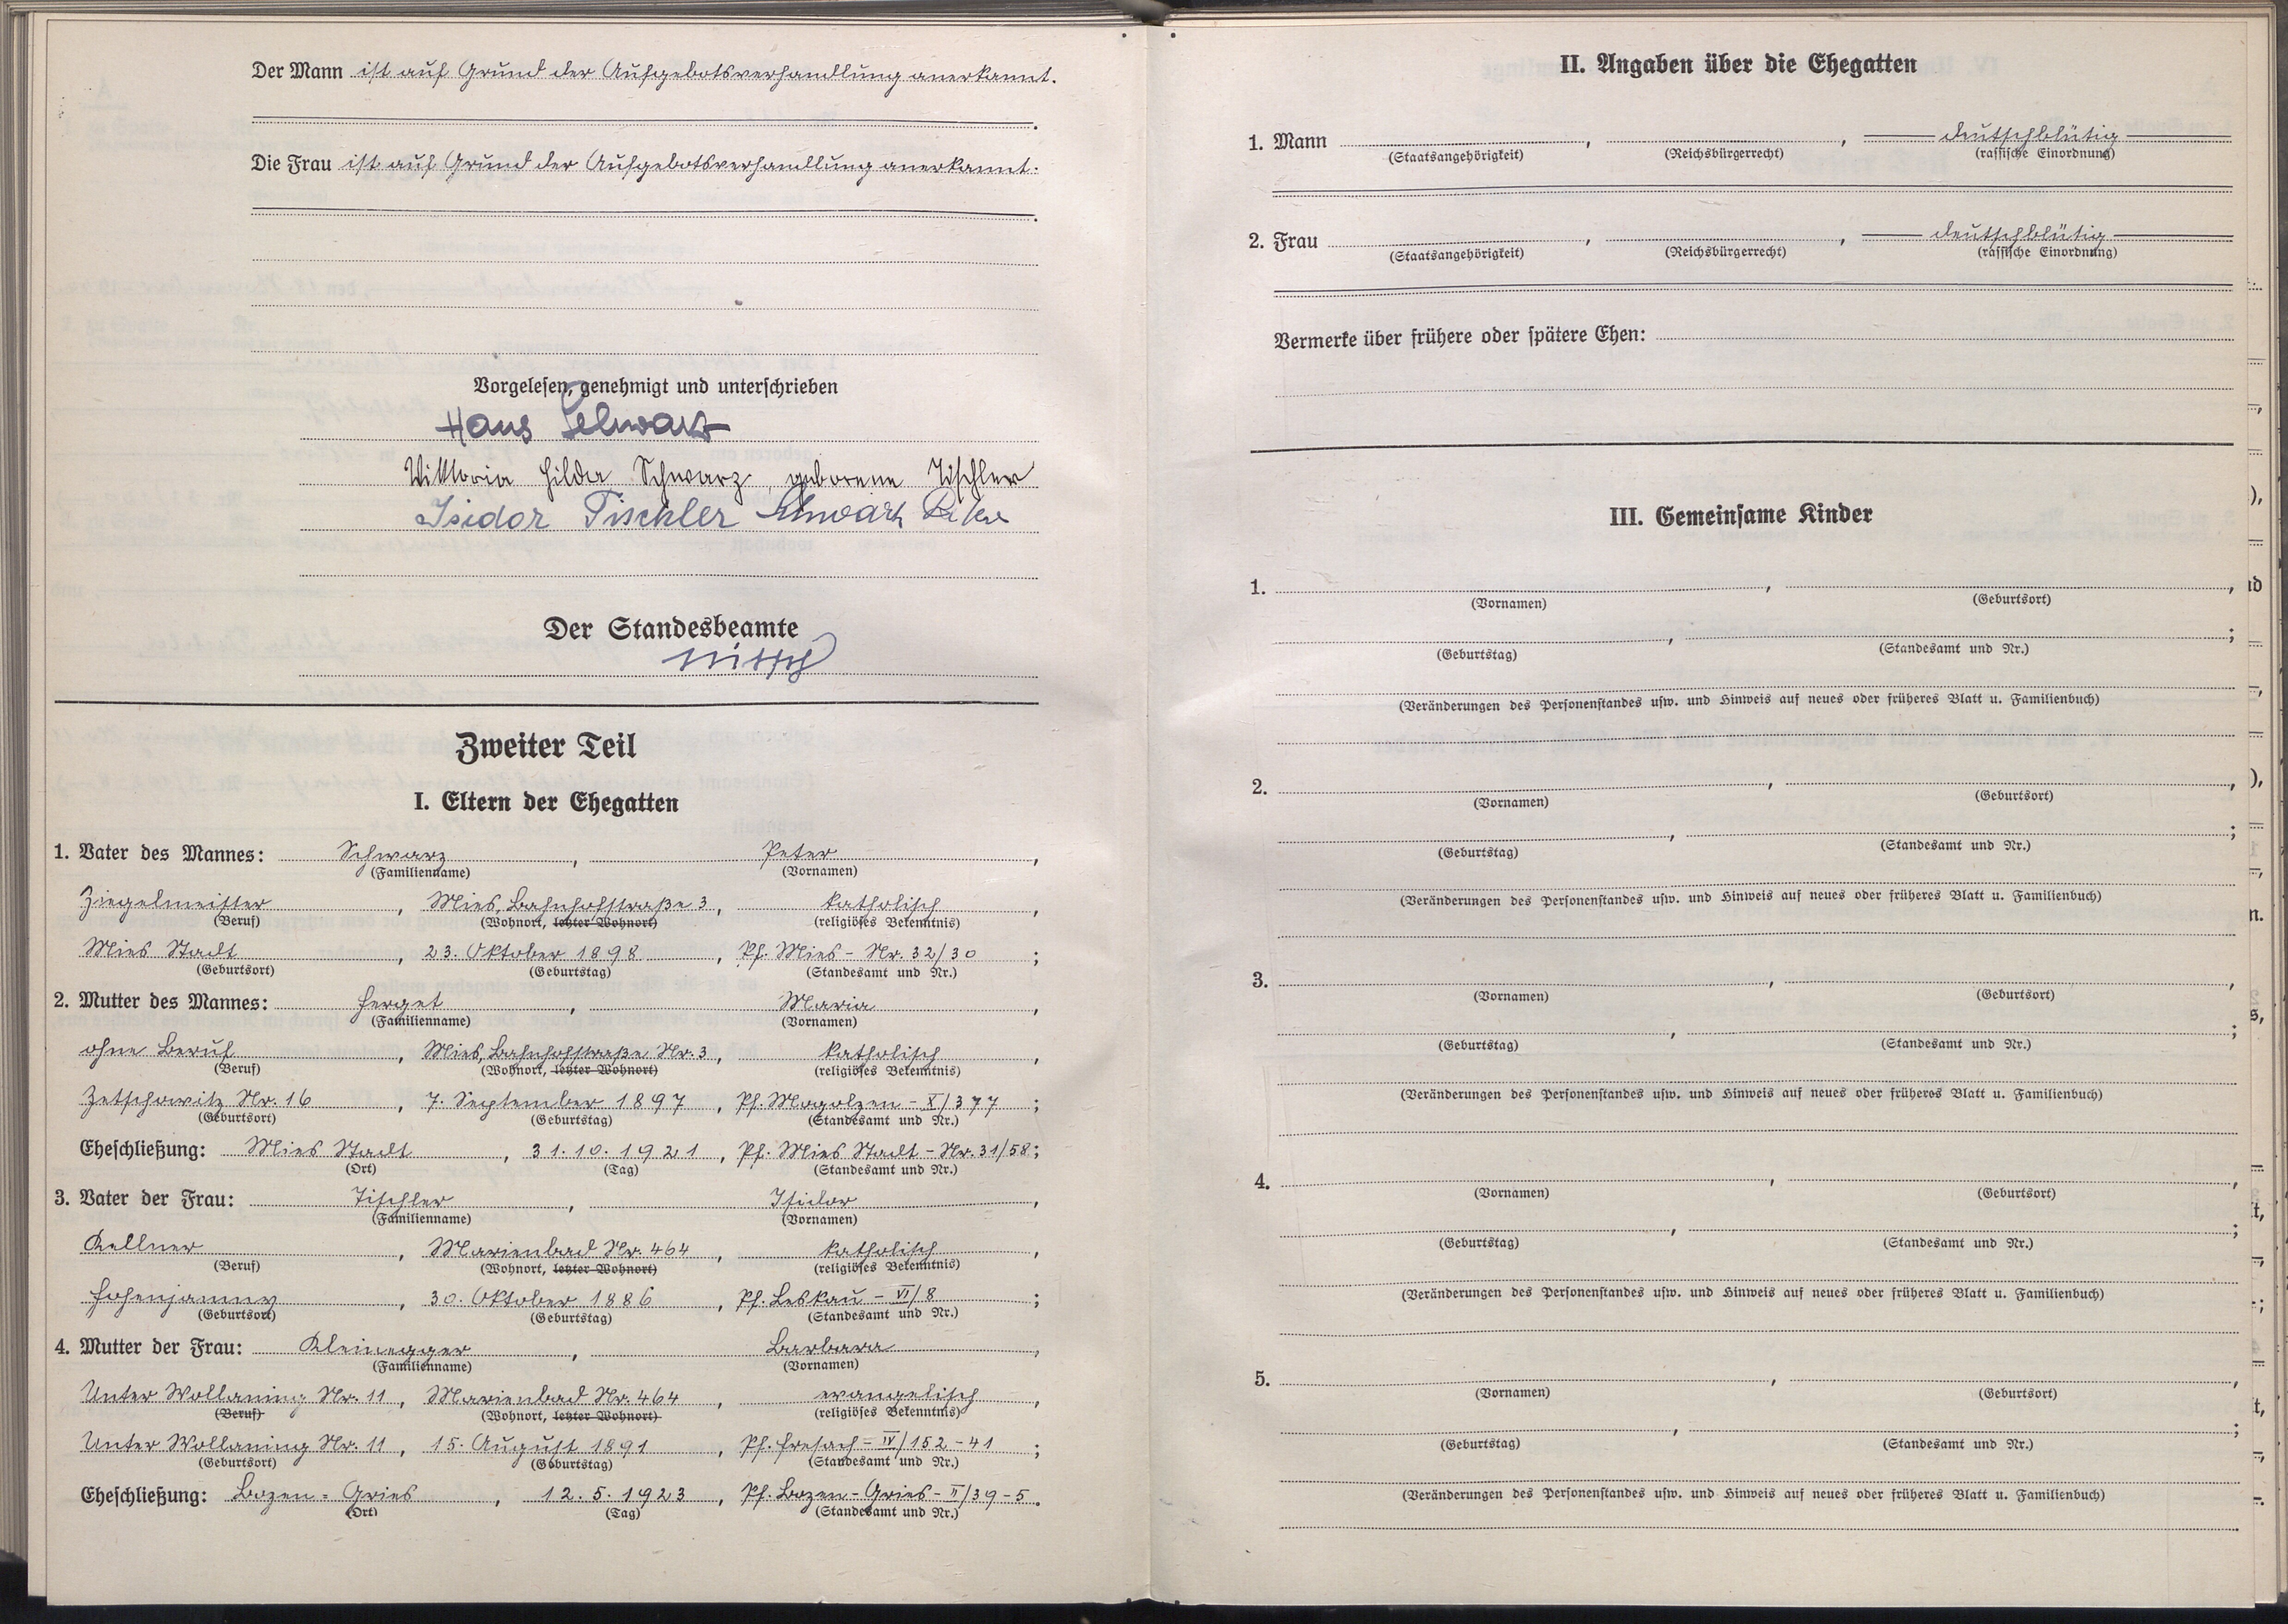 Der Mann ist auf Grund der Aufgebotsverhandlung anerkannt.
Die Frau ist auf Grund der Aufgebotsverhandlung anerkannt.
Vorgelesen, genehmigt und unterschrieben
Hans Schwarz
Viktoria Hilda Schwarz, geborene Tischler
Isidor Tischler Schwarz Peter
Der Standesbeamte
Zweiter Teil
I. Eltern der Ehegatten
1. Vater des Mannes: Schwarz, Peter,
(Familienname) (Vornamen)
Ziegelmeister, Mies, Bahnhofstraße 3, katholisch,
(Beruf) (Wohnort, letzter Wohnort) (religiöses Bekenntnis)
Mies Stadt, 23. Oktober 1898, Pf. Mies - Nr. 32/30;
(Geburtsort) (Geburtstag) (Standesamt und Nr.)
2. Mutter des Mannes: Herget, Maria,
(Familienname) (Vornamen)
ohne Beruf, Mies, Bahnhofstraße Nr. 3, katholisch,
(Beruf) (Wohnort, letzter Wohnort) (religiöses Bekenntnis)
Zetschowitz Nr. 16, 7. September 1897, Pf. Mogolzen - X/377;
(Geburtsort) (Geburtstag) (Standesamt und Nr.)
Eheschließung: Mies Stadt, 31.10.1921, Pf. Mies Stadt - Nr. 31/58;
(Ort) (Tag) (Standesamt und Nr.)
3. Vater der Frau: Tischler, Isidor,
(Familienname) (Vornamen)
Kellner, Marienbad Nr. 464, katholisch,
(Beruf) (Wohnort, letzter Wohnort) (religiöses Bekenntnis)
Hohenjamny, 30. Oktober 1886, Pf. Leskau - VI/8;
(Geburtsort) (Geburtstag) (Standesamt und Nr.)
4. Mutter der Frau: Kleinegger, Barbara,
(Familienname) (Vornamen)
Unter Wollaning Nr. 11, Marienbad Nr. 464, evangelisch,
(Beruf) (Wohnort, letzter Wohnort) (religiöses Bekenntnis)
Unter Wollaning Nr. 11, 15. August 1891, Pf. Fresach - IV/152-41;
(Geburtsort) (Geburtstag) (Standesamt und Nr.)
Eheschließung: Bozen=Gries, 12.5.1923, Pf. Bozen-Gries-II/39-5.
(Ort) (Tag) (Standesamt und Nr.)
II. Angaben über die Ehegatten
1. Mann , , deutschblütig
(Staatsangehörigkeit) (Reichsbürgerrecht) (rassische Einordnung)
2. Frau , , deutschblütig
(Staatsangehörigkeit) (Reichsbürgerrecht) (rassische Einordnung)
Vermerke über frühere oder spätere Ehen:
III. Gemeinsame Kinder
1. , ,
(Vornamen) (Geburtsort)
, ;
(Geburtstag) (Standesamt und Nr.)
(Veränderungen des Personenstandes usw. und Hinweis auf neues oder früheres Blatt u. Familienbuch)
2. , ,
(Vornamen) (Geburtsort)
, ;
(Geburtstag) (Standesamt und Nr.)
(Veränderungen des Personenstandes usw. und Hinweis auf neues oder früheres Blatt u. Familienbuch)
3. , ,
(Vornamen) (Geburtsort)
, ;
(Geburtstag) (Standesamt und Nr.)
(Veränderungen des Personenstandes usw. und Hinweis auf neues oder früheres Blatt u. Familienbuch)
4. , ,
(Vornamen) (Geburtsort)
, ;
(Geburtstag) (Standesamt und Nr.)
(Veränderungen des Personenstandes usw. und Hinweis auf neues oder früheres Blatt u. Familienbuch)
5. , ,
(Vornamen) (Geburtsort)
, ;
(Geburtstag) (Standesamt und Nr.)
(Veränderungen des Personenstandes usw. und Hinweis auf neues oder früheres Blatt u. Familienbuch)